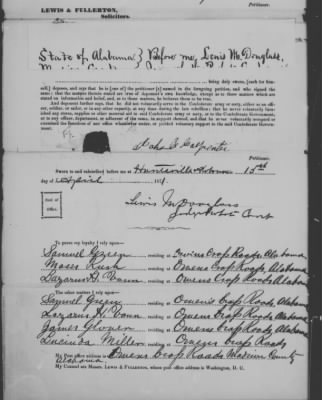 Petitioner.
LEWIS & FULLERTON,
Solicitors.
State of Alabama } Before me, Lewis McDouglass,
being duly sworn, (each for himself,) deposes, and says that he is (one of) the petitioner (s) named in the foregoing petition, and who signed the
same; that the matters therein stated are true of deponent's own knowledge, except as to those matters which are
stated on information and belief, and, as to those matters, he believes them to be true.
And deponent further says, that he did not voluntarily serve in the Confederate army or navy, either as an officer,
soldier, or sailor, or in any other capacity, at any time during the late rebellion; that he never voluntarily furnished
any stores, supplies or other material aid to said Confederate army, or navy, or to the Confederate Government,
or to any officer, department, or adherent of the same, in support thereof, and that he never voluntarily accepted or
exercised the functions of any office whatsoever under, or yielded voluntary support to the said Confederate Government.
Carpenter
Sworn to and subscribed before me at Huntsville Alabama 15th
day of April
Seal
of
office.
Lewis McDouglass
To prove my loyalty I rely upon—
Samuel Green residing at Owens Cross Roads, Alabama
Moses Rush residing at Owens Cross Roads, Alabama
Lazarus H. Vann residing at Owens Cross Roads, Alabama
The other matters I rely upon—
Samuel Green residing at Owens Cross Roads, Alabama
Lazarus H. Vann residing at Owens Cross Roads, Alabama
James Glover residing at Owens Cross Roads, Alabama
Lucinda Miller residing at Owens Cross Roads
My Post office address is Owens Cross Roads Madison County
Alabama.
My Counsel are Messrs. LEWIS & FULLERTON, whose post office address is Washington, D. C.
Petitioner.